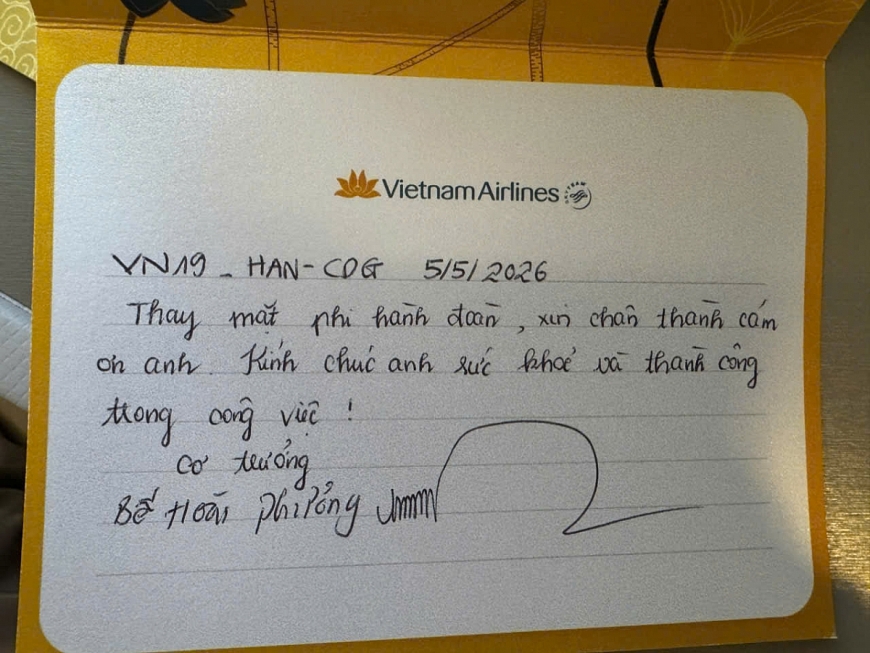 Vietnam Airlines
SKYTEAM
VN19 - HAN-CDG 5/5/2026
Thay mặt phi hành đoàn, xin chân thành cám
ơn anh. Kính chúc anh sức khoẻ và thành công
trong công việc!
Cơ trưởng
Bế Hoài Phương